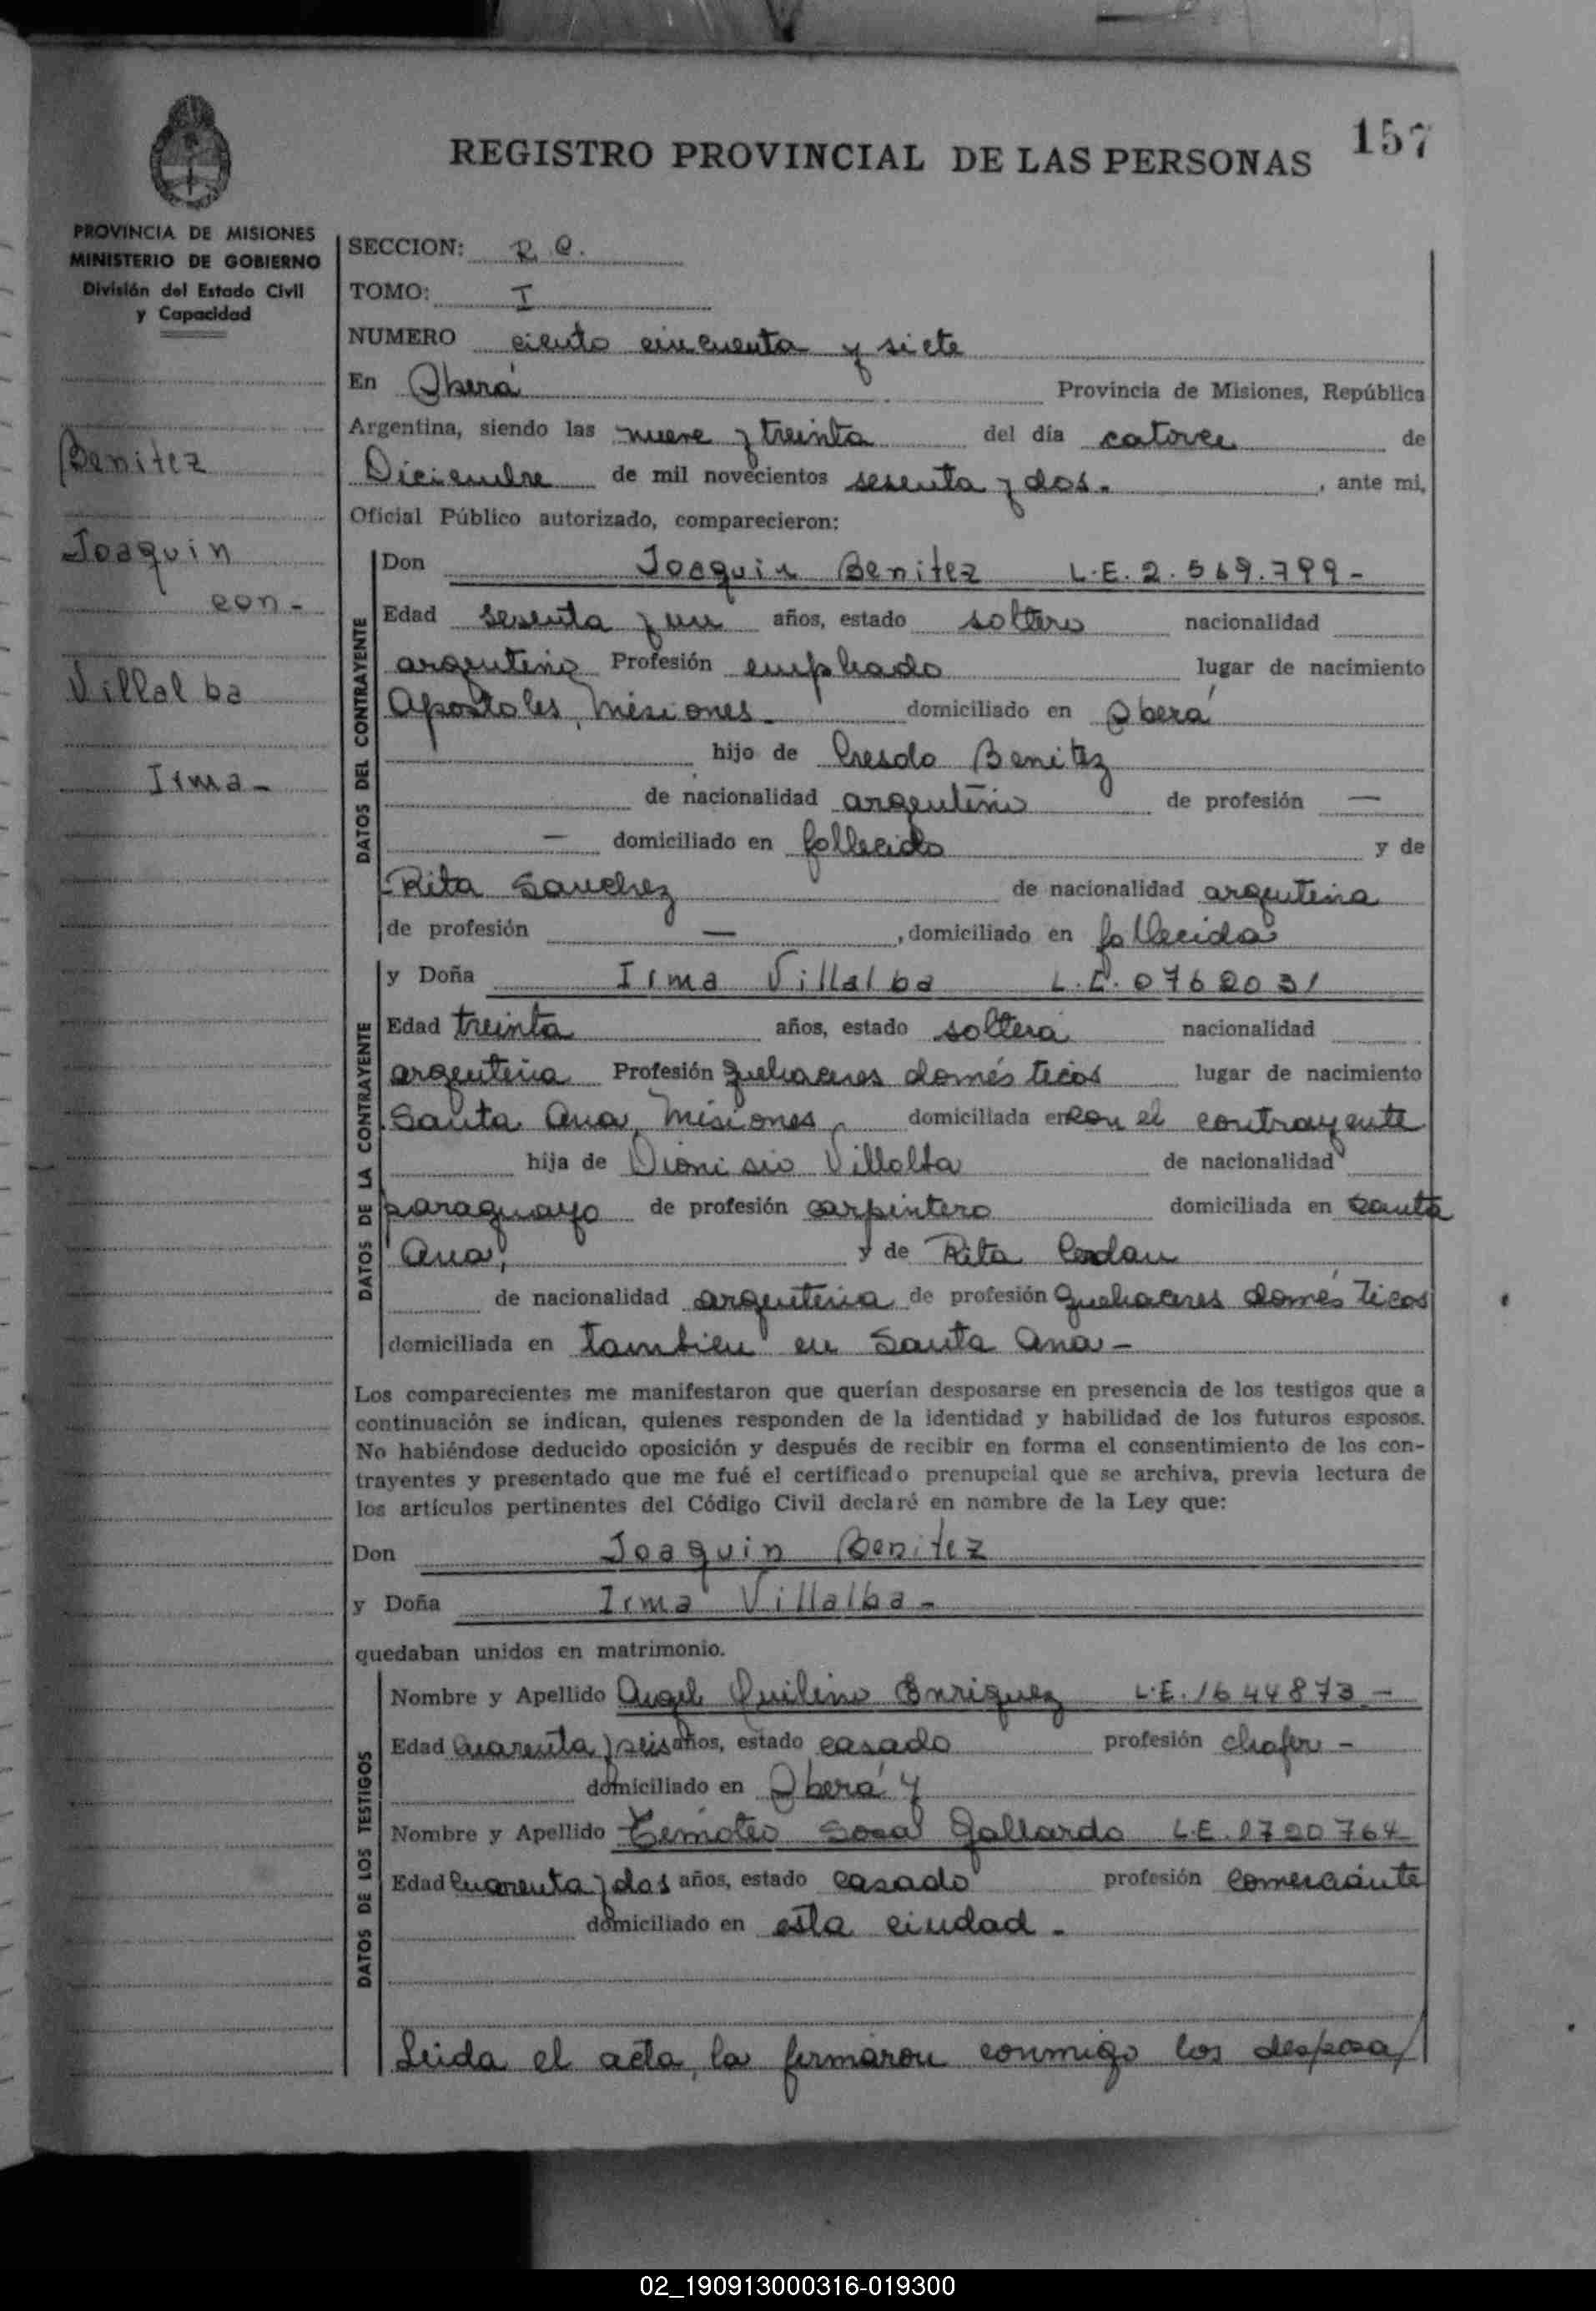 157
REGISTRO PROVINCIAL DE LAS PERSONAS
PROVINCIA DE MISIONES
MINISTERIO DE GOBIERNO
División del Estado Civil
y Capacidad
Benitez
Joaquin
con-
Villalba
Irma-
SECCION: R. Q.
TOMO: I
NUMERO ciento cincuenta y siete
En Oberá Provincia de Misiones, República
Argentina, siendo las nueve y treinta del día catorce de
Diciembre de mil novecientos sesenta y dos. , ante mi,
Oficial Público autorizado, comparecieron:
DATOS DEL CONTRAYENTE
Don Joaquin Benitez L.E. 2.569.799-
Edad sesenta y un años, estado soltero nacionalidad
argentino Profesión empleado lugar de nacimiento
Apostoles, Misiones. domiciliado en Oberá
hijo de Benitez
de nacionalidad argentino de profesión —
— domiciliado en fallecido y de
Rita Sanchez de nacionalidad argentina
de profesión — , domiciliado en fallecida
DATOS DE LA CONTRAYENTE
y Doña Irma Villalba L.C. 0762031
Edad treinta años, estado soltera nacionalidad
argentina Profesión quehaceres domésticos lugar de nacimiento
Santa Ana, Misiones, domiciliada en con el contrayente
hija de Dionisio Villalba de nacionalidad
paraguayo de profesión carpintero domiciliada en Santa
Ana, y de Rita
de nacionalidad argentina de profesión quehaceres domésticos
domiciliada en tambien en Santa Ana-
Los comparecientes me manifestaron que querían desposarse en presencia de los testigos que a
continuación se indican, quienes responden de la identidad y habilidad de los futuros esposos.
No habiéndose deducido oposición y después de recibir en forma el consentimiento de los con-
trayentes y presentado que me fué el certificado prenupcial que se archiva, previa lectura de
los artículos pertinentes del Código Civil declaré en nombre de la Ley que:
Don Joaquin Benitez
y Doña Irma Villalba-
quedaban unidos en matrimonio.
DATOS DE LOS TESTIGOS
Nombre y Apellido Angel Quilino Enriquez L.E. 1644873-
Edad cuarenta y seis años, estado casado profesión chofer-
domiciliado en Oberá y
Nombre y Apellido Temoteo Sosa Gallardo L.E. 1720764
Edad cuarenta y dos años, estado casado profesión comerciante
domiciliado en esta ciudad-
Leida el acta, la firmaron conmigo los desposa/
02_190913000316-019300